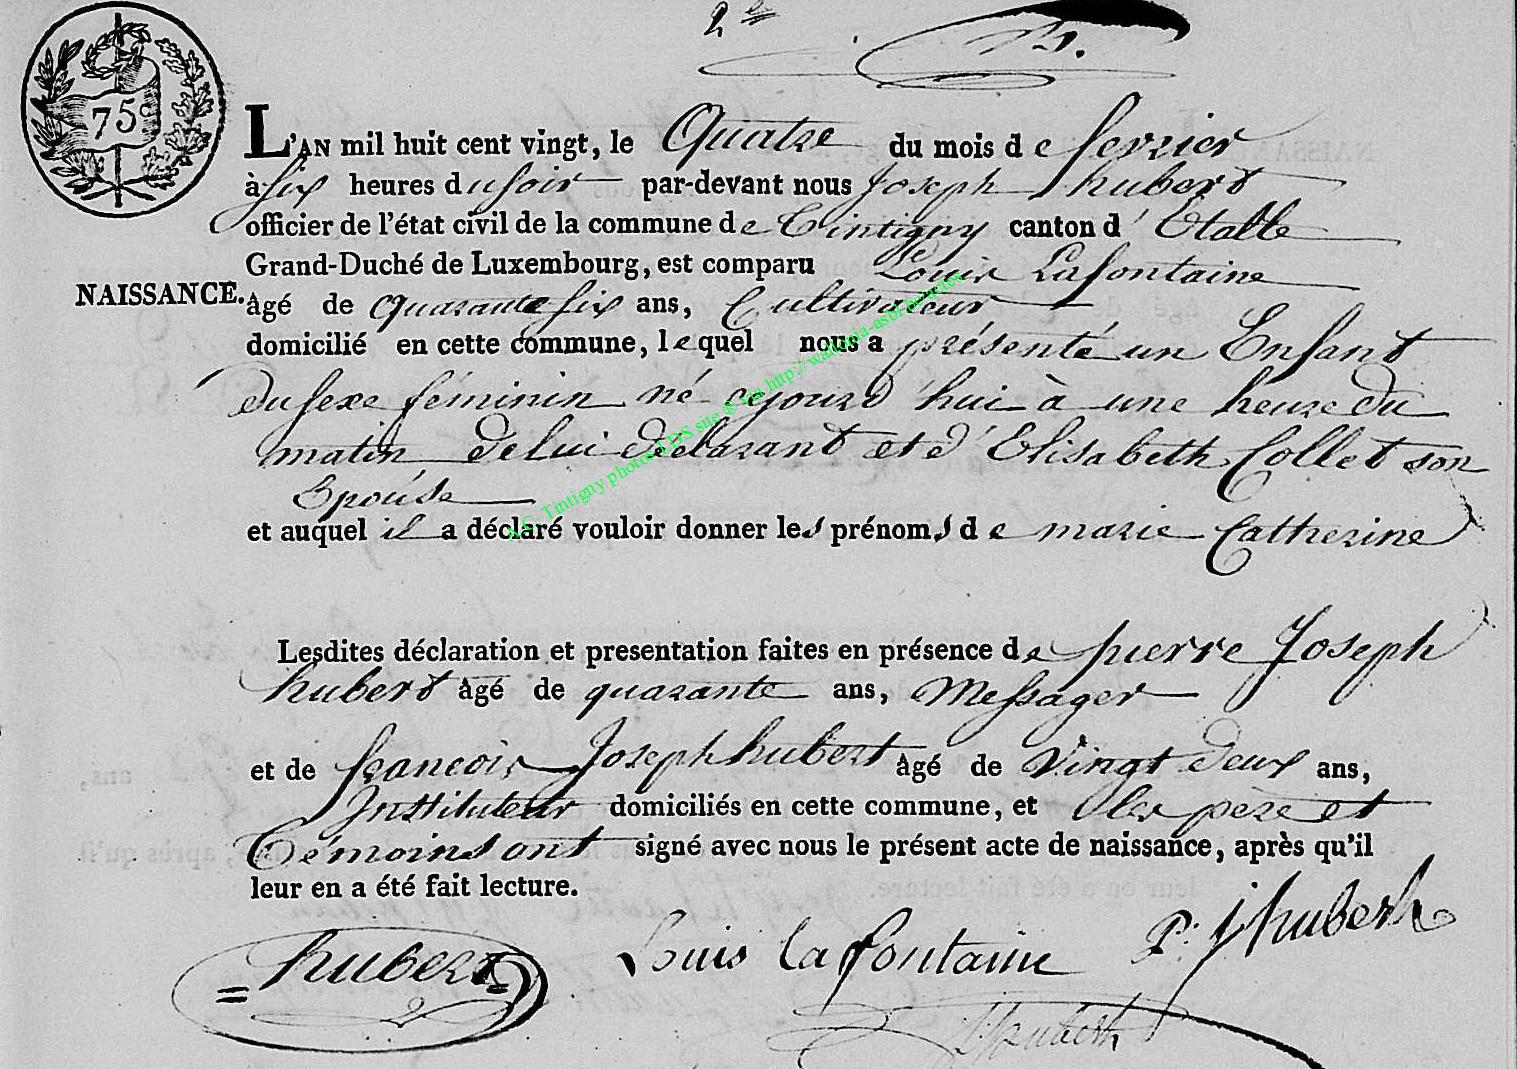 2e
75c
L'AN mil huit cent vingt, le Quatre du mois de fevrier
à six heures du soir par-devant nous Joseph hubert
officier de l'état civil de la commune de Tintigny canton d'Etalle
Grand-Duché de Luxembourg, est comparu le
Louis Lafontaine
NAISSANCE.
âgé de quarante six ans, Cultivateur
domicilié en cette commune, lequel nous a présenté un Enfant
du sexe féminin né cejourd'hui à une heure du
matin de lui déclarant et d'Elisabeth Collet son
Epouse
et auquel il a déclaré vouloir donner les prénoms de marie Catherine
Lesdites déclaration et presentation faites en présence de pierre Joseph
hubert âgé de quarante ans, Messager
et de françois Joseph hubert âgé de Vingt deux ans,
Instituteur domiciliés en cette commune, et les père et
Témoins ont signé avec nous le présent acte de naissance, après qu'il
leur en a été fait lecture.
hubert Louis lafontaine P: J hubert
A.C. Tintigny photos LDS site & via http://wallonia-asbl-be/actes